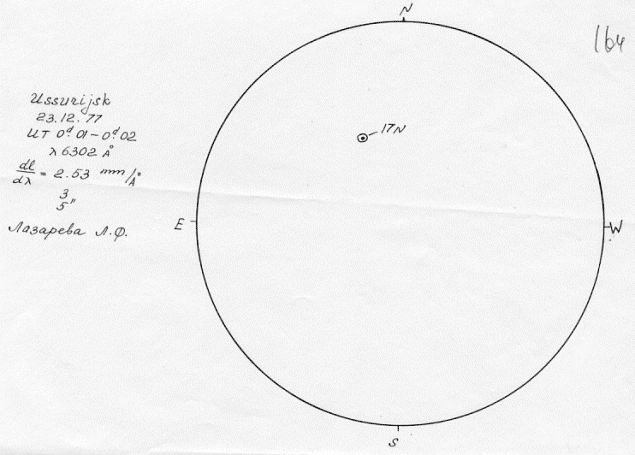 Ussurijsk
23.12.77
UT 0ᵈ.01-0ᵈ.02
λ 6302 Å
dl/dλ = 2.53 mm/Å
3
5"
Лазарева Л.Ф.
N
164
17N
E
W
S